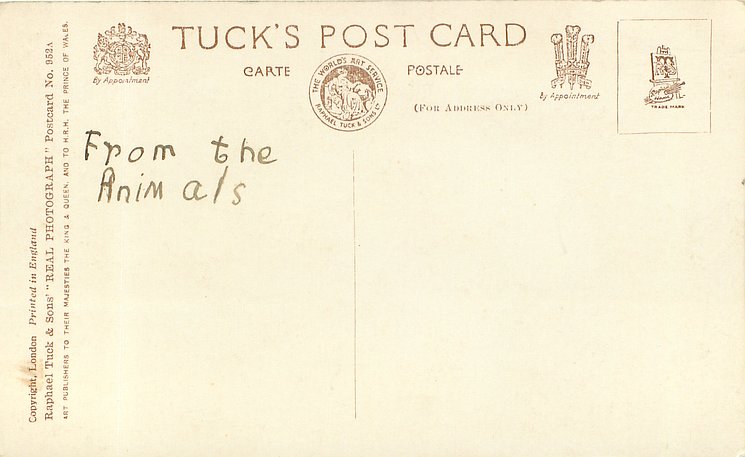 TUCK'S POST CARD
CARTE POSTALE
(FOR ADDRESS ONLY)
By Appointment
THE WORLD'S ART SERVICE
RAPHAEL TUCK & SONS LTD
by Appointment
TRADE MARK
From the
Animals
Copyright, London Printed in England
Raphael Tuck & Sons' "REAL PHOTOGRAPH" Postcard No. 952A
ART PUBLISHERS TO THEIR MAJESTIES THE KING & QUEEN, AND TO H.R.H. THE PRINCE OF WALES.